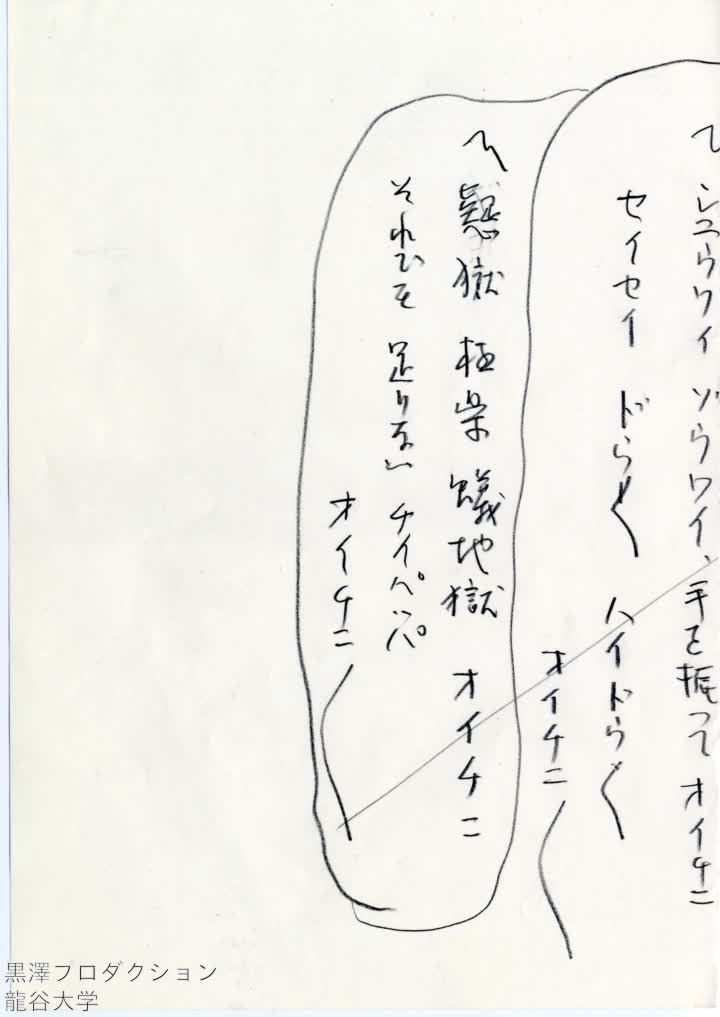 〽シユウワイ ゾウワイ、手を振って オイチニ
セイセイ ドウ〱 ハイドウ〱
オイチニ〱
〽懇獄 極楽 蟻地獄 オイチニ
それでも 足りない チイパッパ
オイチニ〱
黒澤プロダクション
龍谷大学